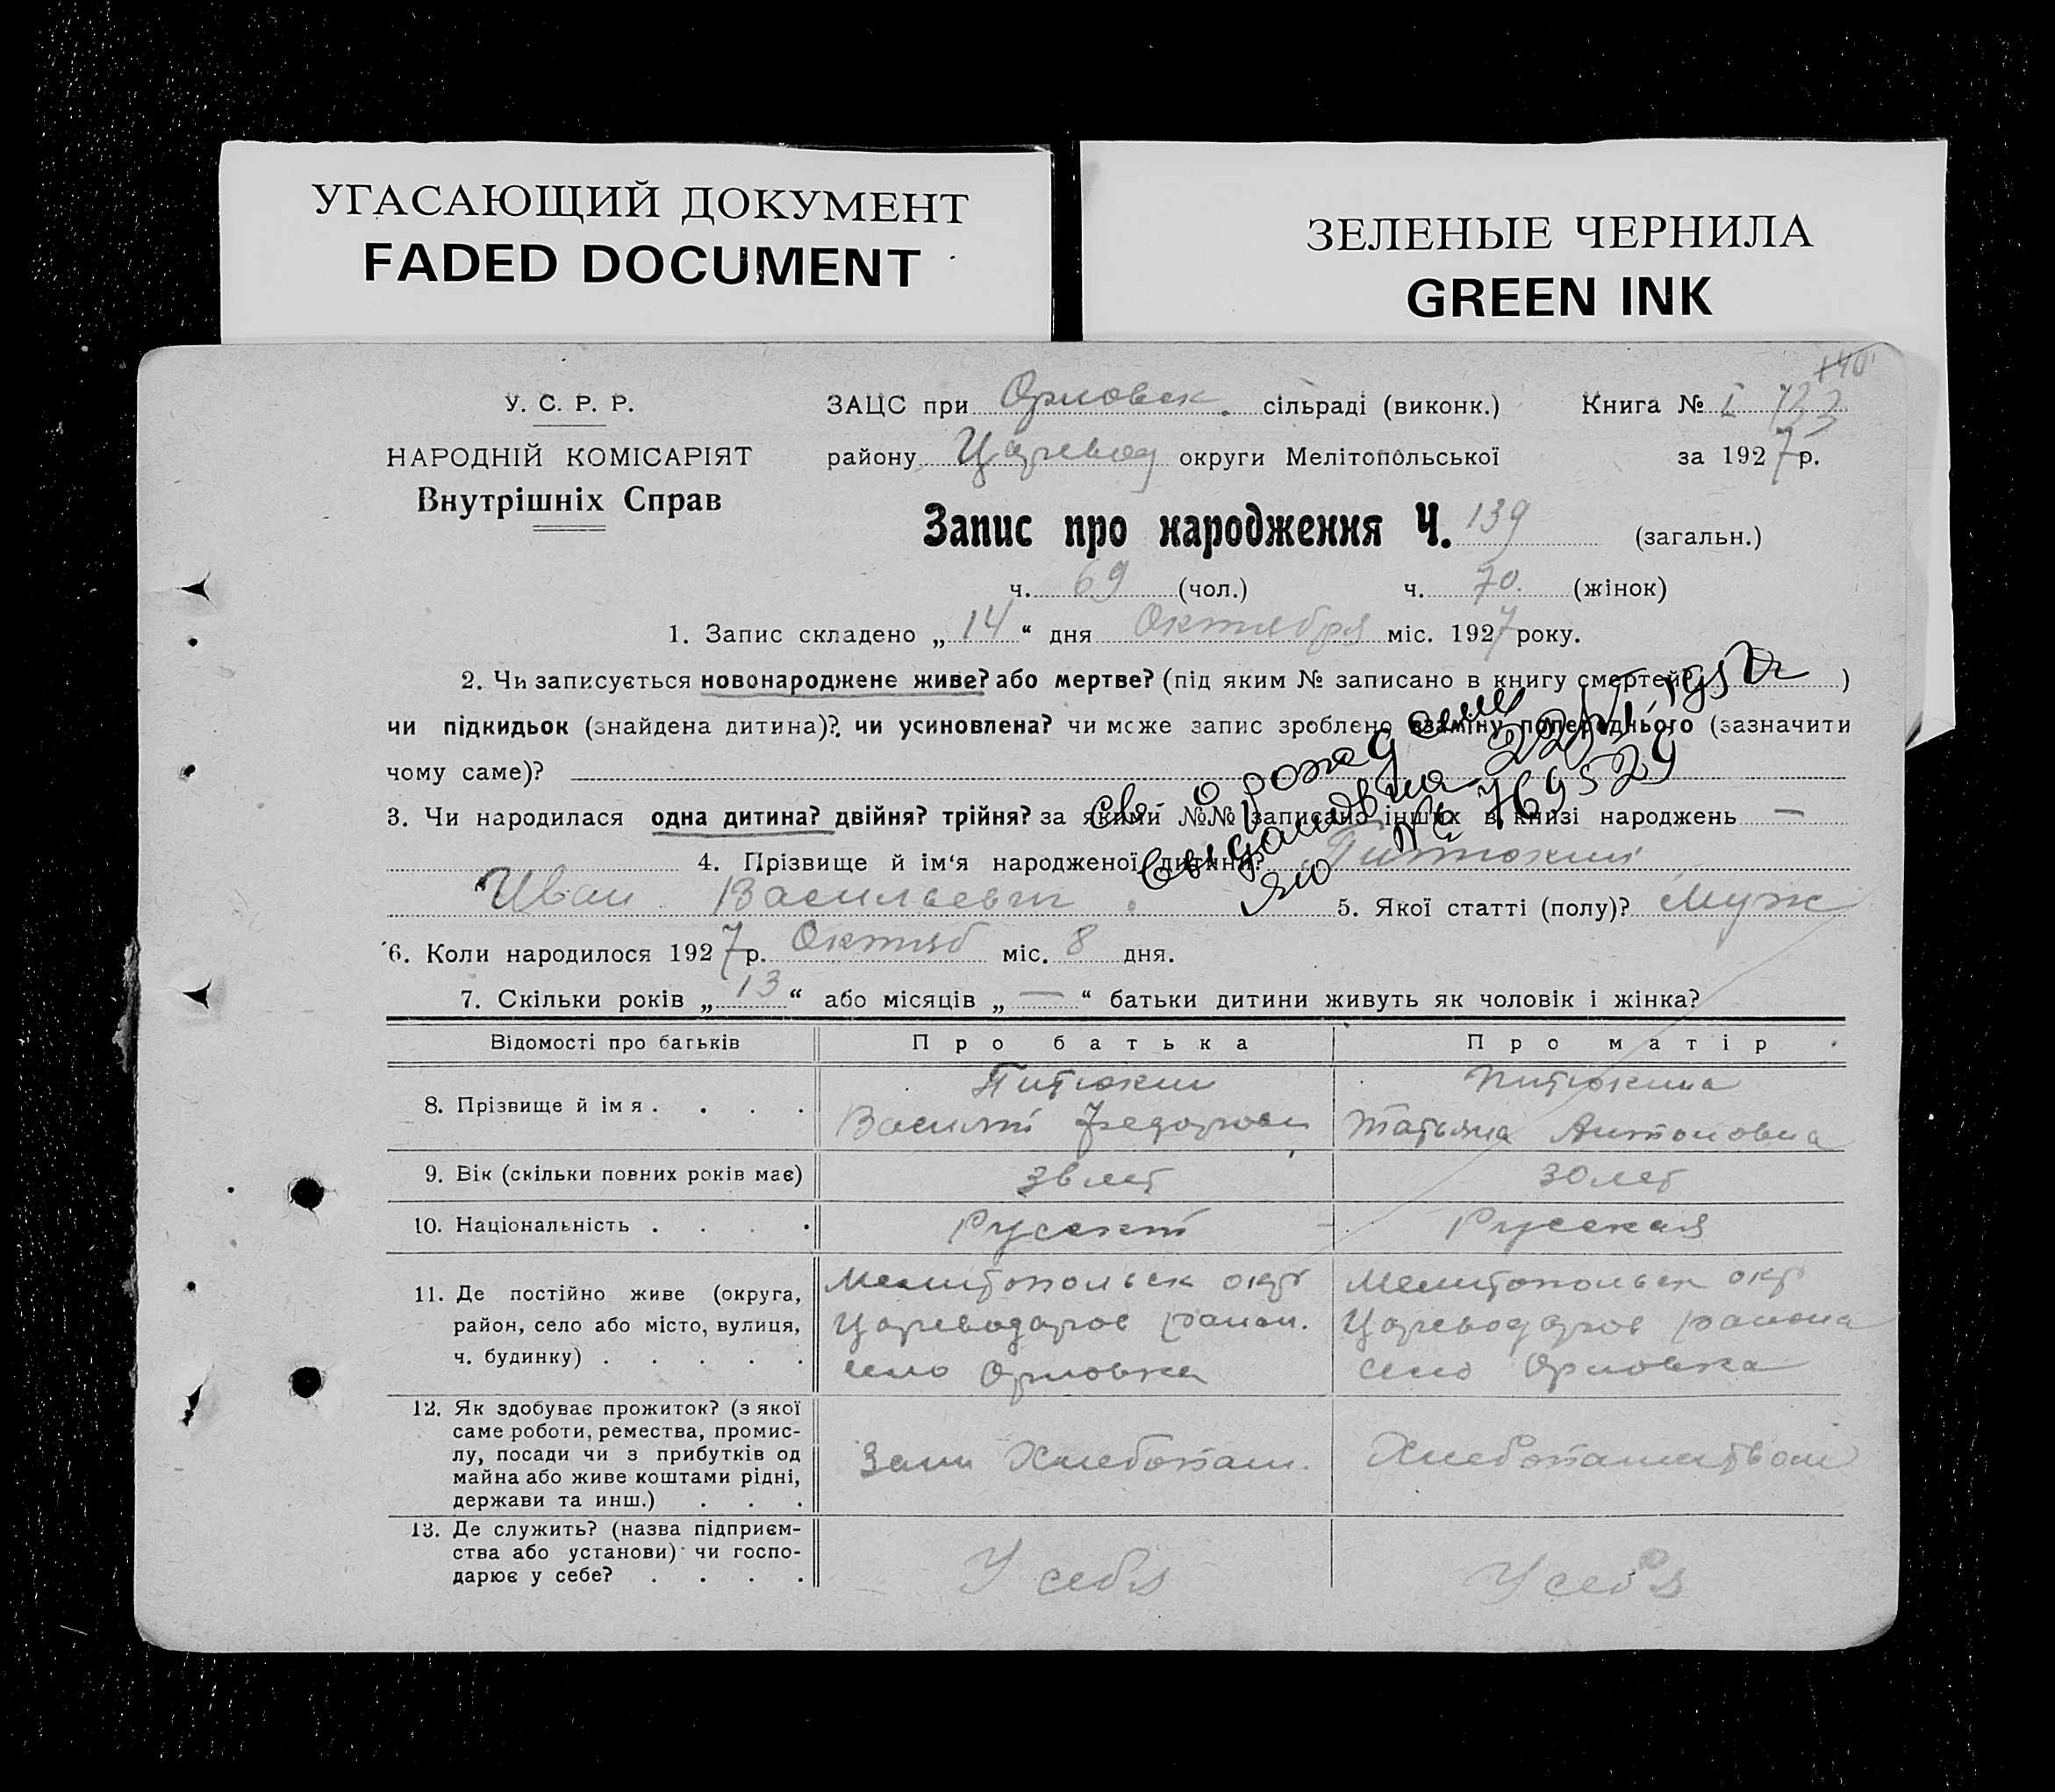 УГАСАЮЩИЙ ДОКУМЕНТ
FADED DOCUMENT
ЗЕЛЕНЫЕ ЧЕРНИЛА
GREEN INK
У. С. Р. Р.
НАРОДНІЙ КОМІСАРІЯТ
Внутрішніх Справ
ЗАЦС при Орловск. сільраді (виконк.) Книга № I
району Царевод округи Мелітопольської за 1927 р.
Запис про народження Ч. 139 (загальн.)
ч. 69 (чол.) ч. 70. (жінок)
1. Запис складено „ 14 “ дня Октября міс. 1927 року.
2. Чи записується новонароджене живе? або мертве? (під яким № записано в книгу смертей? )
чи підкидьок (знайдена дитина)?, чи усиновлена? чи може запис зроблено взаміну попереднього (зазначити
чому саме)?
3. Чи народилася одна дитина? двійня? трійня? за якими №№ записано інших в книзі народжень —
4. Прізвище й ім‘я народженої дитини? Питюкин
Иван Васильевич 5. Якої статті (полу)? Муж
6. Коли народилося 1927 р. Октяб міс. 8 дня.
7. Скільки років „ 13 “ або місяців „ — “ батьки дитини живуть як чоловік і жінка?
Св о рожден
№ 769529
Відомості про батьків Про батька Про матір
8. Прізвище й імя . . . .
Питюкин
Василий Федорович
Питюкина
Татьяна Антоновна
9. Вік (скільки повних років має) 36 лет 30 лет
10. Національність . . . . Русский Русская
11. Де постійно живе (округа,
район, село або місто, вулиця,
ч. будинку) . . . . .
Мелитопольск окр
Цареводаров район.
село Орловка
Мелитопольск окр
Цареводаров района
село Орловка
12. Як здобуває прожиток? (з якої
саме роботи, ремества, промис-
лу, посади чи з прибутків од
майна або живе коштами рідні,
держави та инш.) . . .
Хлебопаш.
Хлебопашеством
13. Де служить? (назва підприєм-
ства або установи) чи госпо-
дарює у себе? . . . .
У себя
У себя